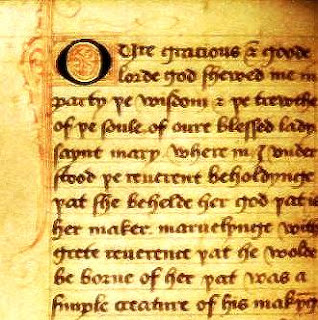 Oure gracious & goode
lorde god shewed me in
party þe wisdom & þe trewthe
of þe soule of oure blessed lady
saynt mary where in I vnder
stood þe reuerent beholdynge
þat she behelde her god þat is
her maker. maruelynge with
grete reuerence þat he wolde
be borne of her þat was a
simple creature of his makyng